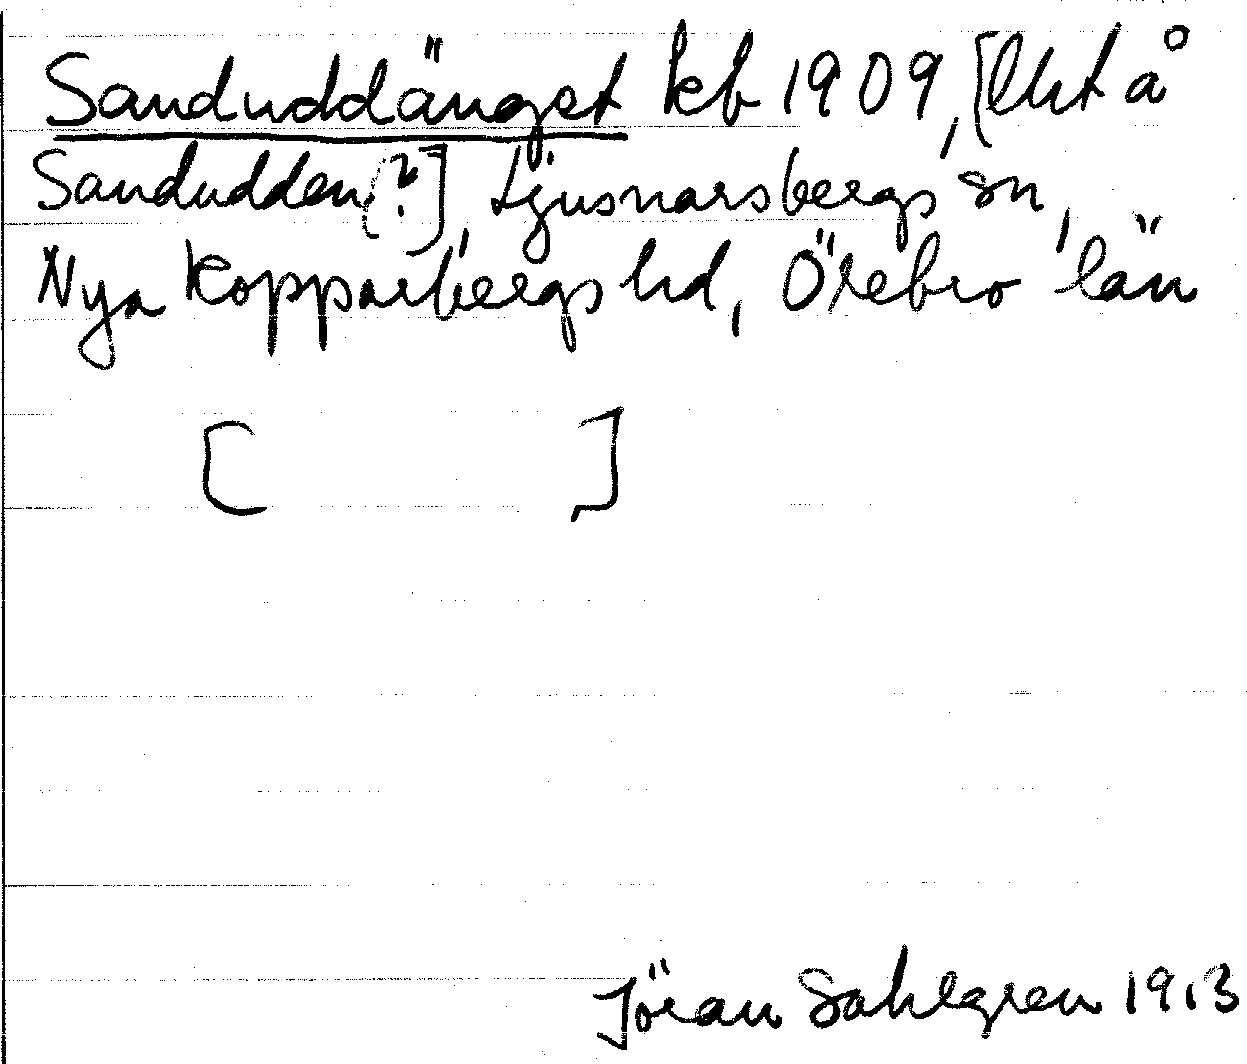 Sanduddänget kb 1909, [lht å
Sandudden(?], Ljusnarsbergs sn,
Nya Kopparbergs hd, Örebro län
[ ]
Jöran Sahlgren 1913